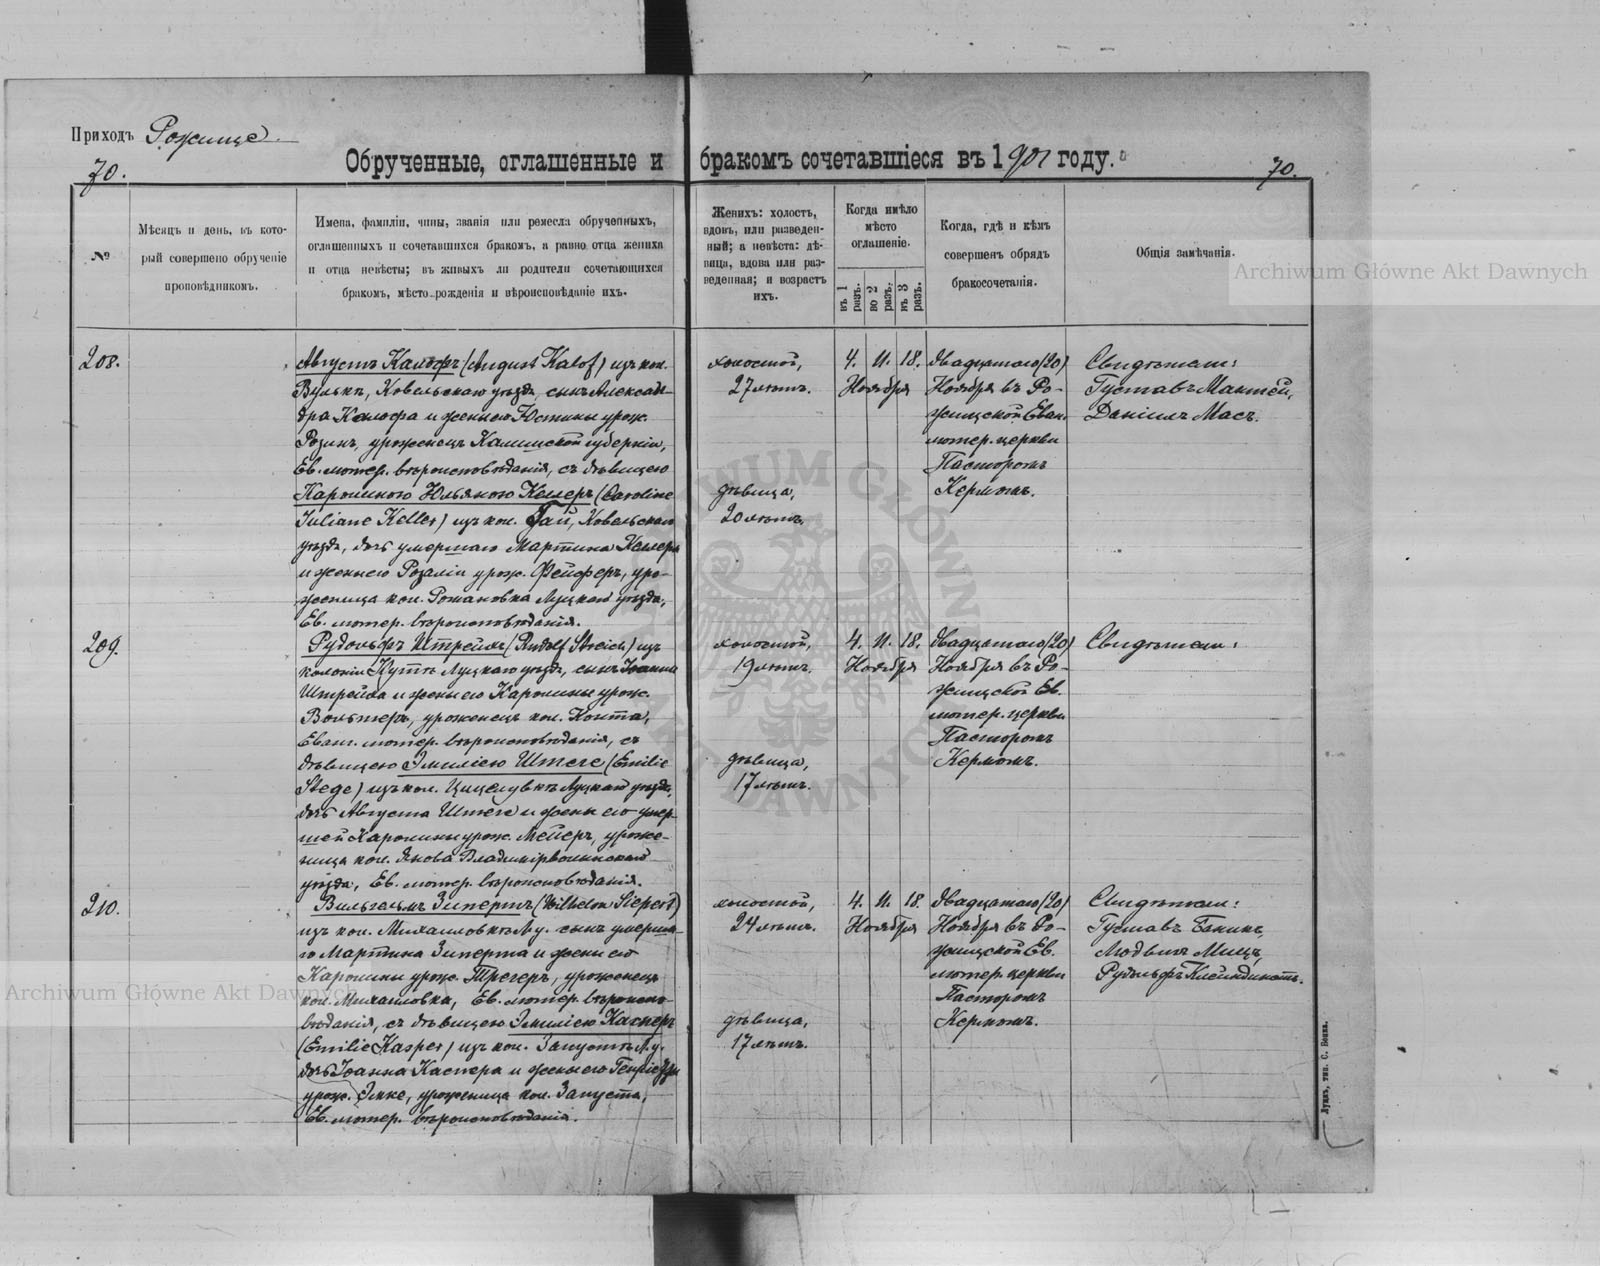 Приходъ Рожище
70.
Обрученные, оглашенные и бракомъ сочетавшіеся въ 1901 году.
70.
№
Мѣсяцъ и день, въ кото-
рый совершено обрученіе
проповѣдникомъ.
Имена, фамиліи, чины, званія или ремесла обрученныхъ,
оглашенныхъ и сочетавшихся бракомъ, а равно отца жениха
и отца невѣсты; въ живыхъ ли родители сочетающихся
бракомъ, мѣсто рожденія и вѣроисповѣданіе ихъ.
Женихъ: холостъ,
вдовъ, или разведен-
ный; а невѣста: дѣ-
вица, вдова или раз-
веденная; и возрастъ
ихъ.
Когда имѣло
мѣсто
оглашеніе.
въ 1 разъ.
во 2 разъ.
въ 3 разъ.
Когда, гдѣ и кѣмъ
совершенъ обрядъ
бракосочетанія.
Общія замѣчанія.
Archiwum Główne Akt Dawnych
208.
Августъ Калофъ (August Kalof) изъ кол.
Вулькѣ, Ковельскаго уѣзда, сынъ Александ-
дра Калофа и жены его Юстины урож.
Розинъ, уроженецъ Калишской губерніи,
Ев. лютер. вѣроисповѣданія, съ дѣвицею
Каролиною Юльяною Келлеръ (Caroline
Juliane Keller) изъ кол. Гай, Ковельскаго
уѣзда, дочь умершаго Мартина Келлера
и жены его Розаліи урож. Фейферъ, уро-
женица кол. Рожановка Луцкаго уѣзда,
Ев. лютер. вѣроисповѣданія.
холостой,
27 лѣтъ.
дѣвица,
20 лѣтъ.
4. 11. 18.
Ноября
двадцатаго (20)
Ноября въ Ро-
жищской Еван.
лютер. церкви
Пасторомъ
Кермомъ.
Свидѣтели:
Густавъ Мантей,
Даніилъ Масъ.
209.
Рудольфъ Штрейхъ (Rudolf Streich) изъ
колоніи Кутъ Луцкаго уѣзда, сынъ Іоанна
Штрейха и жены его Каролины урож.
Вольтеръ, уроженецъ кол. Конта,
Еванг. лютер. вѣроисповѣданія, съ
дѣвицею Эмиліею Штеге (Emilie
Stege) изъ кол. Луцкаго уѣзда,
дочь Августа Штеге и жены его умер-
шей Каролины урож. Мейеръ, уроже-
ница кол. Янова Владимірволынскаго
уѣзда, Ев. лютер. вѣроисповѣданія.
холостой,
19 лѣтъ.
дѣвица,
17 лѣтъ.
4. 11. 18.
Ноября
двадцатаго (20)
Ноября въ Ро-
жищской Ев.
лютер. церкви
Пасторомъ
Кермомъ.
Свидѣтели:
210.
Вильгельмъ Зипертъ (Wilhelm Siepert)
изъ кол. Михайловкѣ Л. у. сынъ умерша-
го Мартина Зиперта и жены его
Каролины урож. Трегеръ, уроженецъ
кол. Михайловка, Ев. лютер. вѣроиспо-
вѣданія, съ дѣвицею Эмиліею Касперъ
(Emilie Kasper) изъ кол. Запустъ Л. у.
дочь Іоанна Каспера и жены его
урож. Эмке, уроженица кол. Запуста,
Ев. лютер. вѣроисповѣданія.
холостой,
24 лѣтъ.
дѣвица,
17 лѣтъ.
4. 11. 18.
Ноября
двадцатаго (20)
Ноября въ Ро-
жищской Ев.
лютер. церкви
Пасторомъ
Кермомъ.
Свидѣтели:
Густавъ
Людвигъ
Рудольфъ
Archiwum Główne Akt Dawnych